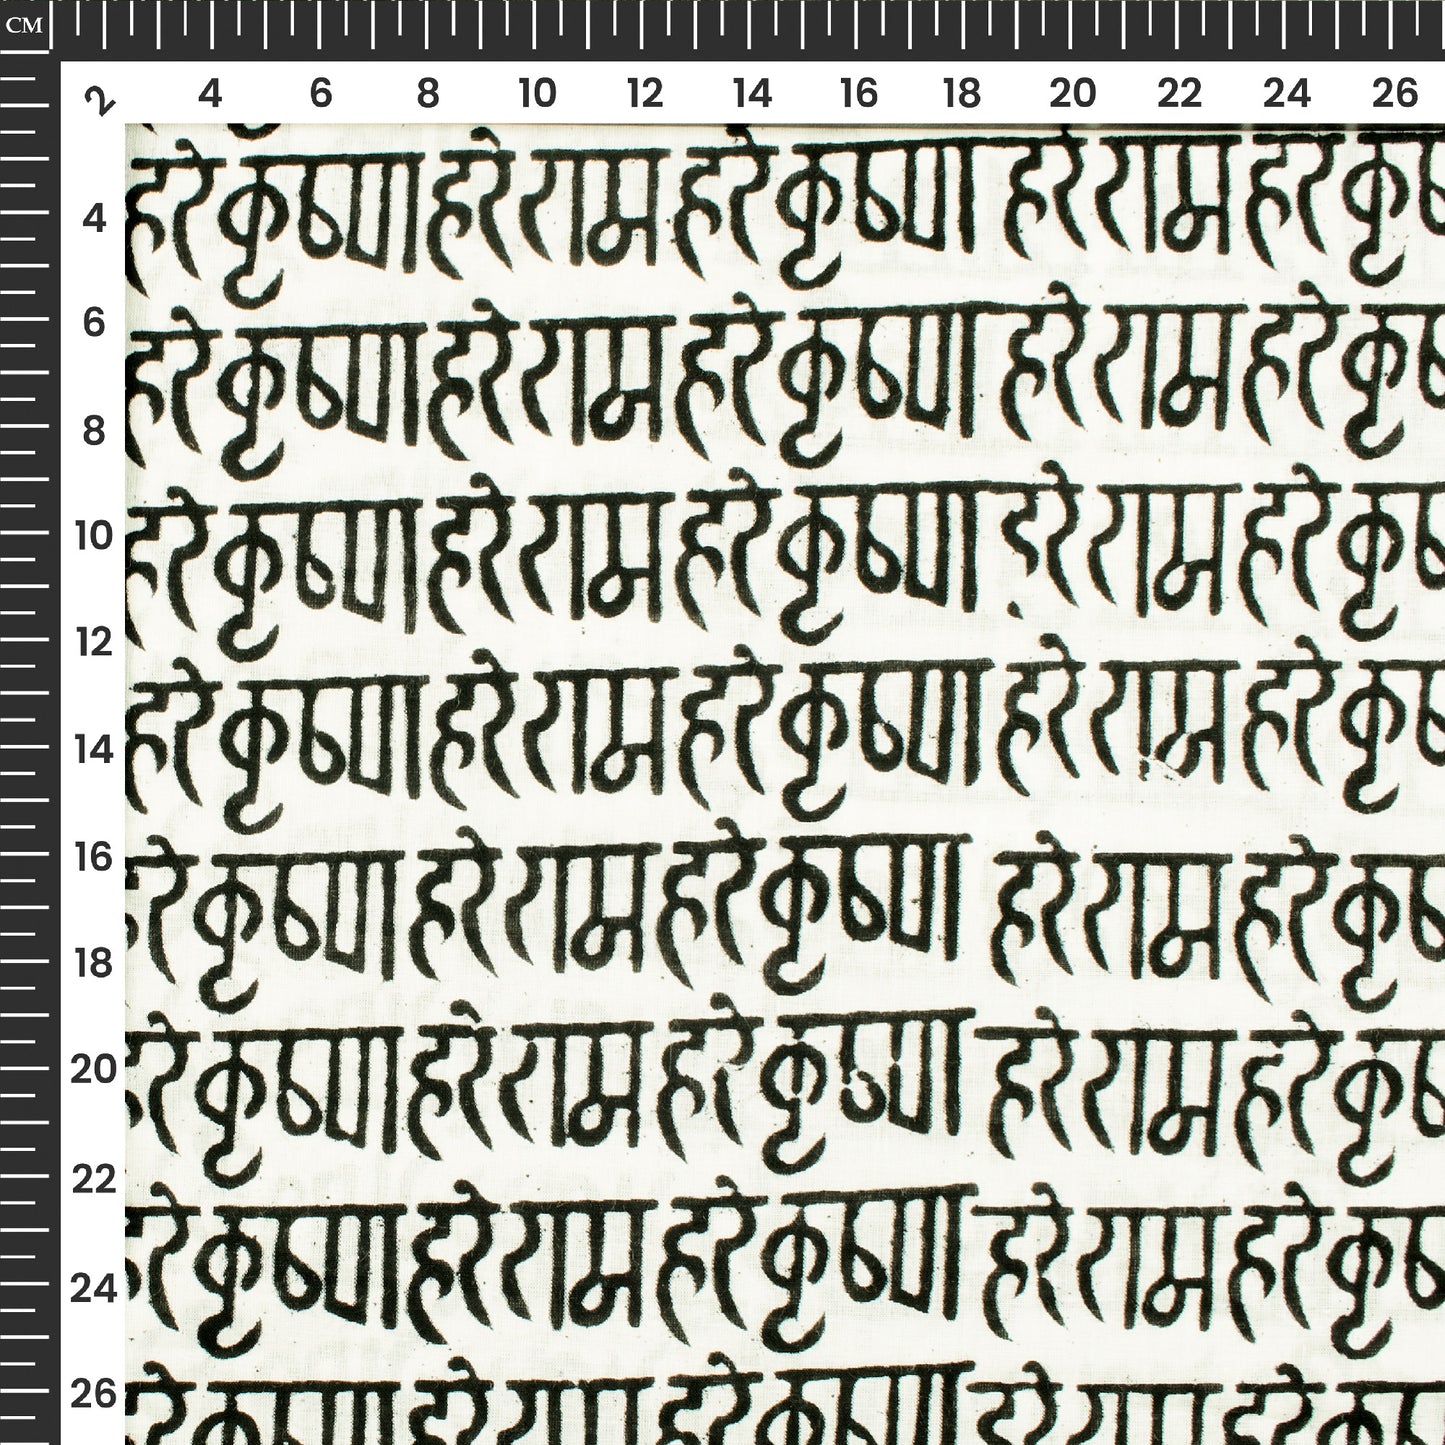 CM
2 4 6 8 10 12 14 16 18 20 22 24 26
4
6
8
10
12
14
16
18
20
22
24
26
हरे कृष्ण हरे राम हरे कृष्ण हरे राम हरे
हरे कृष्ण हरे राम हरे कृष्ण हरे राम हरे
हरे कृष्ण हरे राम हरे कृष्ण हरे राम हरे
हरे कृष्ण हरे राम हरे कृष्ण हरे राम हरे
हरे कृष्ण हरे राम हरे कृष्ण हरे राम हरे
हरे कृष्ण हरे राम हरे कृष्ण हरे राम हरे
हरे कृष्ण हरे राम हरे कृष्ण हरे राम हरे
हरे कृष्ण हरे राम हरे कृष्ण हरे राम हरे